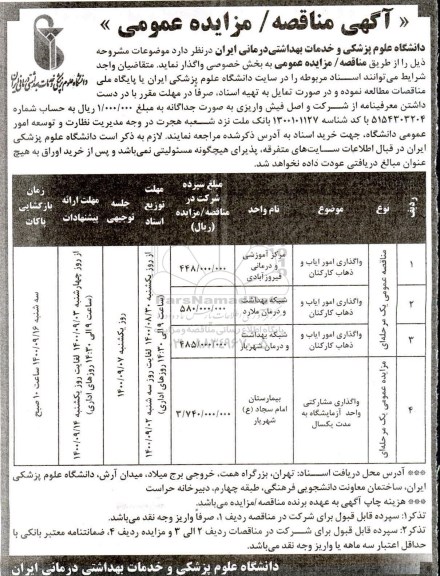 « آگهی مناقصه/ مزایده عمومی »
دانشگاه علوم پزشکی و خدمات بهداشتی درمانی ایران درنظر دارد موضوعات مشروحه
ذیل را از طریق مناقصه / مزایده عمومی به بخش خصوصی واگذار نماید. متقاضیان واجد
شرایط می‌توانند اسناد مربوطه را در سایت دانشگاه علوم پزشکی ایران یا پایگاه ملی
مناقصات مطالعه نموده و در صورت تمایل به تهیه اسناد، صرفا در مهلت مقرر با در دست
داشتن معرفینامه از شرکت و اصل فیش واریزی به صورت جداگانه به مبلغ ۱/۰۰۰/۰۰۰ ریال به حساب شماره
۵۱۵۴۲۰۳۲۰۴ با کد شناسه ۱۳۰۰۱۰۱۱۲۷ بانک ملت نزد شعبه هجرت در وجه مدیریت نظارت و توسعه امور
عمومی دانشگاه، جهت خرید اسناد به آدرس ذکرشده مراجعه نمایند. لازم به ذکر است دانشگاه علوم پزشکی
ایران در قبال اطلاعات سایت‌های متفرقه، پذیرای هیچگونه مسئولیتی نمی‌باشد و پس از خرید اوراق به هیچ
عنوان مبالغ دریافتی عودت داده نخواهد شد.
ردیف نوع موضوع نام واحد مبلغ سپرده شرکت در مناقصه/مزایده (ریال) مهلت توزیع اسناد جلسه توجیهی مهلت ارائه پیشنهادات زمان بازگشایی پاکات
۱ واگذاری امور ایاب و ذهاب کارکنان مرکز آموزشی و درمانی فیروزآبادی ۴۴۸/۰۰۰/۰۰۰
۲ واگذاری امور ایاب و ذهاب کارکنان شبکه بهداشت و درمان ملارد ۵۸۰/۰۰۰/۰۰۰
۳ واگذاری امور ایاب و ذهاب کارکنان شبکه بهداشت و درمان شهریار ۴۸۵/۰۰۰/۰۰۰
مناقصه عمومی یک مرحله‌ای
۴ مزایده عمومی یک مرحله‌ای واگذاری مشارکتی واحد آزمایشگاه به مدت یکسال بیمارستان امام سجاد (ع) شهریار ۳/۷۴۰/۰۰۰/۰۰۰
از روز یکشنبه ۱۴۰۰/۰۸/۳۰ لغایت روز سه شنبه ۱۴۰۰/۰۹/۰۲ (ساعت ۹ الی ۱۴:۳۰ روزهای اداری)
روز یکشنبه ۱۴۰۰/۰۹/۰۷
از روز چهارشنبه ۱۴۰۰/۰۹/۰۳ لغایت روز یکشنبه ۱۴۰۰/۰۹/۱۴ (ساعت ۹ الی ۱۴:۳۰ روزهای اداری)
سه شنبه ۱۴۰۰/۰۹/۱۶ ساعت ۱۰ صبح
*** آدرس محل دریافت اسناد: تهران، بزرگراه همت، خروجی برج میلاد، میدان آرش، دانشگاه علوم پزشکی
ایران، ساختمان معاونت دانشجویی فرهنگی، طبقه چهارم، دبیرخانه حراست
*** هزینه چاپ آگهی به عهده برنده مناقصه/مزایده می‌باشد.
تذکر۱: سپرده قابل قبول برای شرکت در مناقصه ردیف ۱، صرفا واریز وجه نقد می‌باشد.
تذکر۲: سپرده قابل قبول برای شرکت در مناقصات ردیف ۲ الی ۳ و مزایده ردیف ۴، ضمانتنامه معتبر بانکی با
حداقل اعتبار سه ماهه یا واریز وجه نقد می‌باشد.
دانشگاه علوم پزشکی و خدمات بهداشتی درمانی ایران